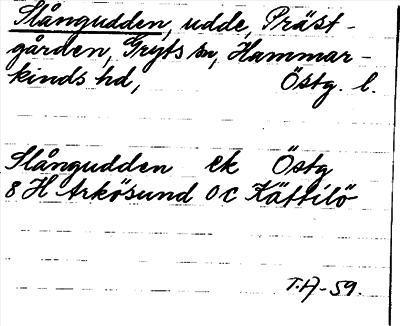 Slångudden, udde, Präst-
gården, Gryts sn, Hammar-
kinds hd, Östg. l.
Slångudden ek Östg
8 H Arkösund OC Kättilö
T.A-59.